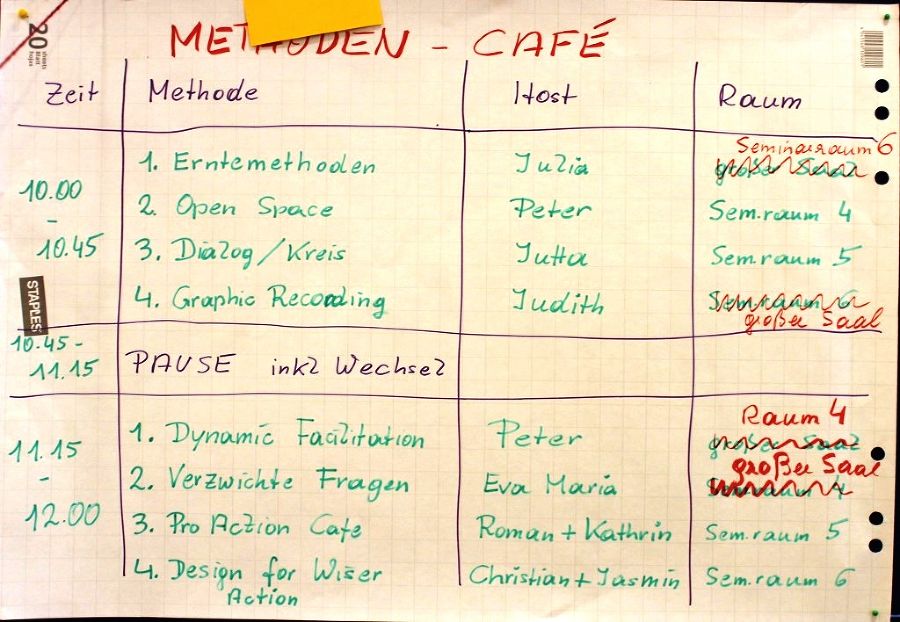 METHODEN - CAFÉ
Zeit Methode Host Raum
10.00 - 10.45
1. Erntemethoden Julia großer Saal Seminarraum 6
2. Open Space Peter Sem.raum 4
3. Dialog/Kreis Jutta Sem.raum 5
4. Graphic Recording Judith Sem.raum 6 großer Saal
10.45 - 11.15 PAUSE inkl Wechsel
11.15 - 12.00
1. Dynamic Facilitation Peter großer Saal Raum 4
2. Verzwickte Fragen Eva Maria Sem.raum 4 großer Saal
3. Pro Action Cafe Roman + Kathrin Sem.raum 5
4. Design for Wiser Action Christian + Jasmin Sem.raum 6
STAPLES
20